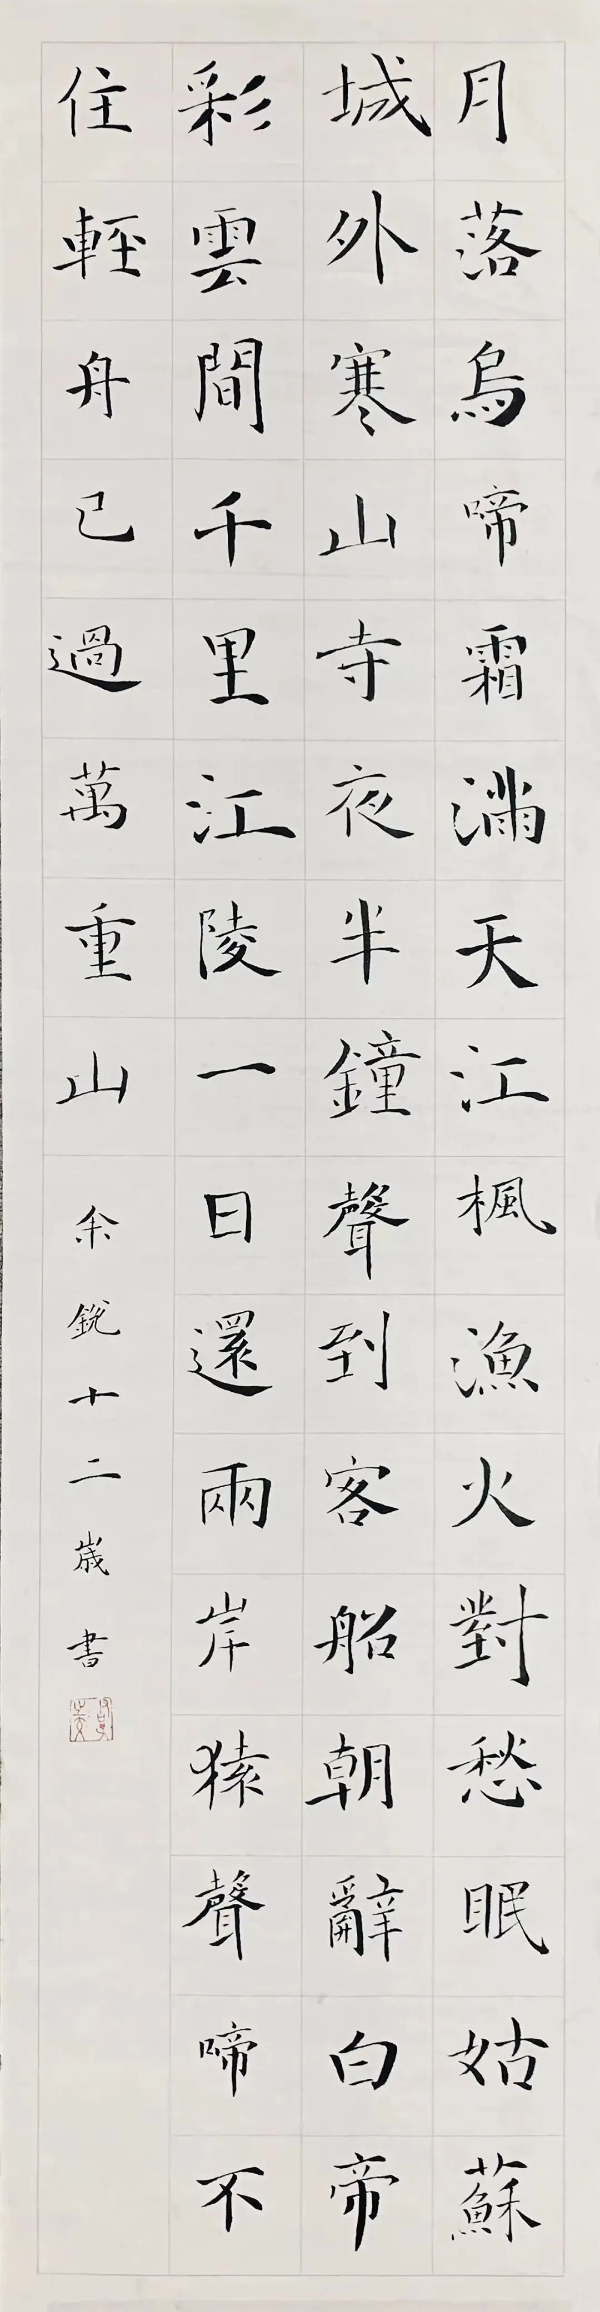 月落烏啼霜滿天江楓漁火對愁眠姑蘇
城外寒山寺夜半鐘聲到客船朝辭白帝
彩雲間千里江陵一日還兩岸猿聲啼不
住輕舟已過萬重山
余銳十二歲書